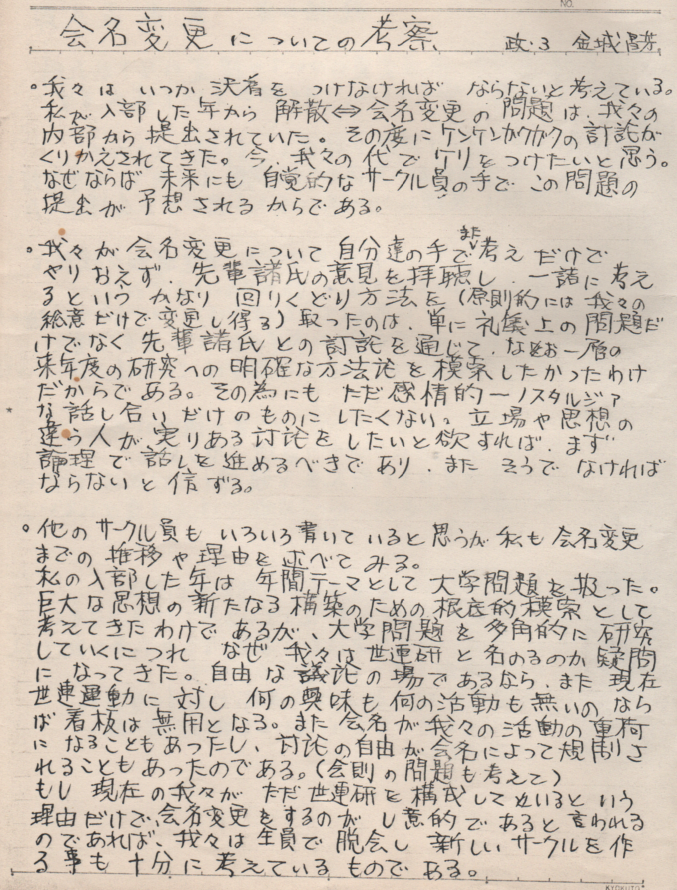 NO.
会名変更についての考察 政.3 金城昌芳
。我々は いつか 決着を つけなければ ならないと考えている。
私が入部した年から 解散⇔会名変更の 問題は、我々の
内部から提出されていた。その度にケンケンガクガクの討論が
くりかえされてきた。今、我々の代でケリをつけたいと思う。
なぜならば 未来にも 自覚的なサークル員の手で この問題の
提出が予想されるからである。
。我々が会名変更について 自分達の手で また 考え だけで
やりおえず、先輩諸氏の意見を拝聴し、一諸に考え
るといつ かなり 回りくどり方法を(原則的には我々の
総意だけで変更し得る)取ったのは、単に礼儀上の問題だ
けでなく先輩諸氏との討論を通じて、なをお一層の
来年度の研究への明確な方法論を模索したかったわけ
だからである。その為にもただ感情的〜ノスタルジア
な話し合いだけのものにしたくない。立場や思想の
違う人が、実りある討論をしたいと欲すれば、まず
論理で話しを進めるべきであり、また そうでなければ
ならないと信ずる。
。他のサークル員も いろいろ書いていると思うが 私も会名変更
までの推移や理由を述べてみる。
私の入部した年は 年間テーマとして大学問題を扱った。
巨大な思想の新たなる構築のための根底的模索として
考えてきたわけであるが、大学問題を多角的に研究
していくにつれ なぜ我々は世連研と名のるのか疑問
になってきた。自由な議論の場であるなら、また現在
世連運動に対し 何の興味も何の活動も無いのなら
ば看板は無用となる。また会名が我々の活動の重荷
になることもあったし、討論の自由が会名によって規制さ
れることもあったのである。(会則の問題も考えて)
もし現在の我々が ただ世連研を構成しているという
理由だけで、会名変更をするのがし意的であると言われる
のであれば、我々は全員で脱会し 新しいサークルを作
る事も十分に考えているものである。
KYOKUTO